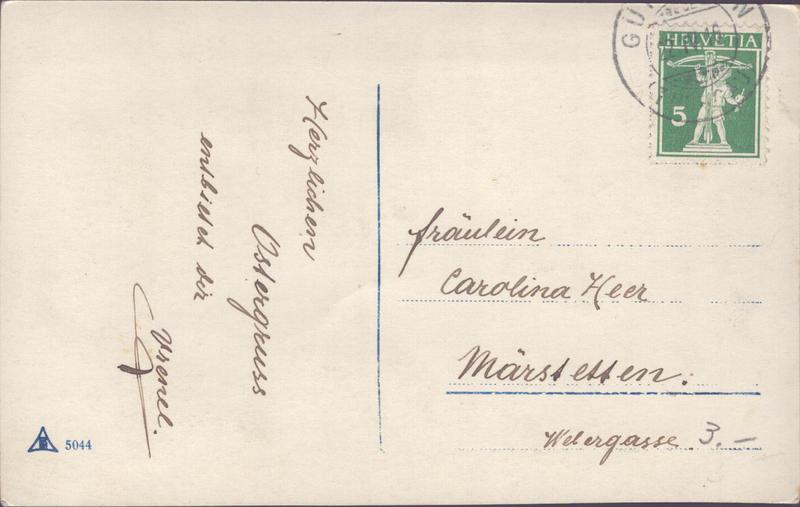 Herzlichen
Ostergruss
entbietet dir
Vrenel.
5044
HELVETIA
5
fräulein
Carolina Heer
Märstetten.
Webergasse 3.-